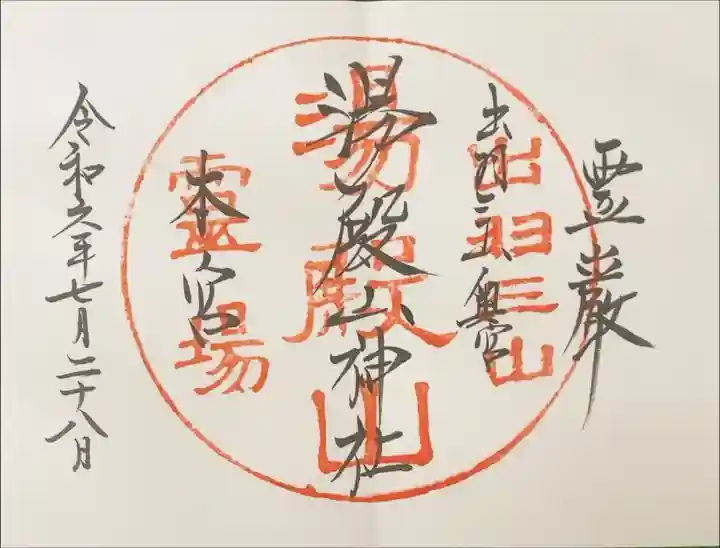 霊巌
出羽三山奥宮
湯殿山神社
本宮
令和六年七月二十八日
出羽三山
湯殿山
靈場